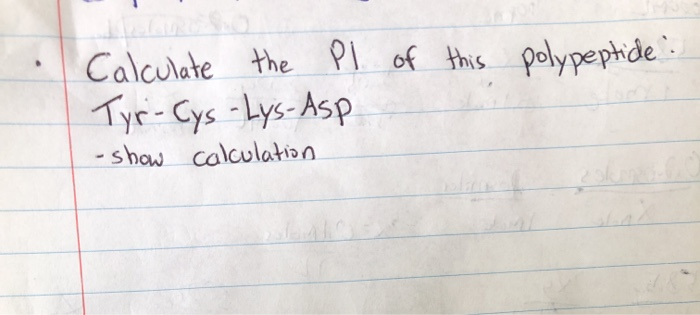 . Calculate the PI of this polypeptide:
Tyr-Cys-Lys-Asp
-show calculation